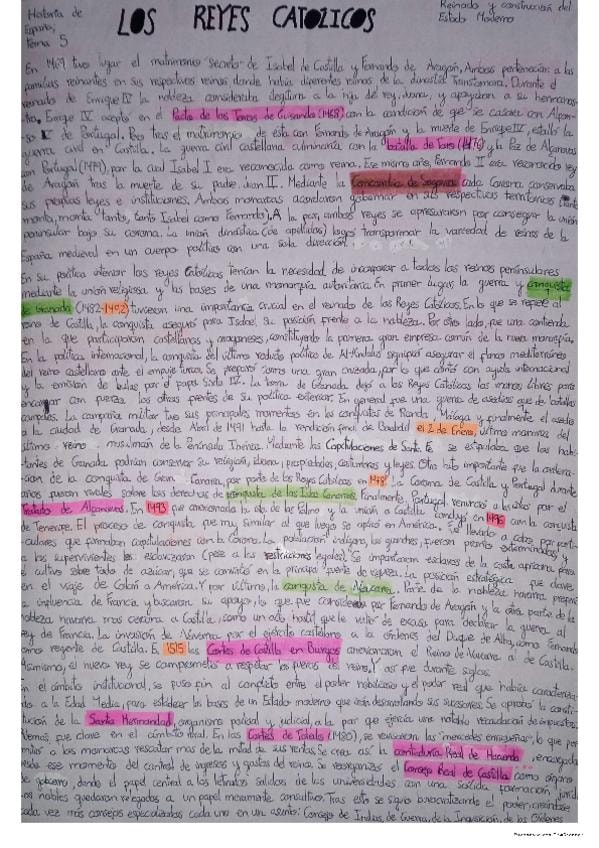 Historia de
España,
Tema 5
LOS REYES CATOLICOS
Reinado y construcción del
Estado Moderno
En 1469 tuvo lugar el matrimonio "secreto" de Isabel de Castilla y Fernando de Aragón. Ambos pertenecían a las
familias reinantes en sus respectivos reinos donde había diferentes reinos de la dinastía Trastámara. Durante el
reinado de Enrique IV la nobleza consideraba ilegítima a la hija del rey, Juana, y apoyaban a su hermanas-
tra. Enrique IV aceptó en el Pacto de los Toros de Guisando (1468) con la condición de que se casara con Alfon-
so de Portugal. Pero tras el matrimonio de ésta con Fernando de Aragón y la muerte de Enrique IV, estalló la
guerra civil en Castilla. La guerra civil castellana culminaría con la batalla de Toro (1476) y la Paz de Alcaçovas
con Portugal (1479), por la cual Isabel I era reconocida como reina. Ese mismo año, Fernando II era reconocido rey
de Aragón tras la muerte de su padre Juan II. Mediante la Concordia de Segovia cada Corona conservaba
sus propias leyes e instituciones. Ambos monarcas acordaron gobernar en sus respectivos territorios (Tanto
monta, monta tanto, tanto Isabel como Fernando). A la par, ambos reyes se apresuraron por conseguir la unión
peninsular bajo su corona. La unión dinástica (de apellidos) logró transformar la variedad de reinos de la
España medieval en un cuerpo político con una sola dirección.
En su política interior los reyes Católicos tenían la necesidad de incorporar a todos los reinos peninsulares
mediante la unión religiosa y las bases de una monarquía autoritaria. En primer lugar, la guerra y conquista
de Granada (1482-1492) tuvieron una importancia crucial en el reinado de los Reyes Católicos. En lo que se respecta al
reino de Castilla, la conquista aseguró para Isabel su posición frente a la nobleza. Por otro lado, fue una contienda
en la que participaron castellanos y aragoneses, constituyendo la primera gran empresa común de la nueva monarquía.
En la política internacional, la conquista del último reducto político de Al-Ándalus significó asegurar el flanco mediterráneo
del reino castellano ante el empuje turco. Se preparó como una gran cruzada, por lo que contó con ayuda internacional
y la emisión de bulas por el papa Sixto IV. La toma de Granada dejó a los Reyes Católicos las manos libres para
encargar con fuerza los otros frentes de su política exterior. En general fue una guerra de asedios que de batallas
campales. La campaña militar tuvo sus principales momentos en las conquistas de Ronda, Málaga y finalmente el asedio
a la ciudad de Granada, desde Abril de 1491 hasta la rendición final de Boabdil el 2 de Enero, último monarca del
último reino musulmán de la Península Ibérica. Mediante las Capitulaciones de Santa Fe se estipulaba que los habi-
tantes de Granada podrían conservar su religión, idioma, propiedades, costumbres y leyes. Otro hito importante fue la
de la conquista de Gran Canaria, por parte de los Reyes Católicos en. La Corona de Castilla y Portugal durante
años fueron rivales sobre los derechos de conquista de las Islas Canarias. Finalmente, Portugal renunció a las islas por el
Tratado de Alcaçovas. En 1493 fue anexionada la isla de La Palma y la unión a Castilla concluyó en 1496 con la conquista
de Tenerife. El proceso de conquista fue muy similar al que luego se aplicó en América. Es llevado a cabo por part-
iculares que formaban capitulaciones con la Corona. La población indígena, los guanches, fueron pronto exterminados y
a los supervivientes los esclavizaron (pese a las restricciones legales). Se importaron esclavos de la costa africana para
el cultivo sobre todo de azúcar, que se convirtió en la principal fuente de riqueza. La posición estratégica fue clave
en el viaje de Colón a América. Y por último, la conquista de Navarra. Parte de la nobleza navarra
influencia de Francia y buscaron su apoyo, lo que fue considerado por Fernando de Aragón y la otra parte de la
nobleza navarra más cercana a Castilla, como un acto hostil que le valió de excusa para declarar la guerra al
rey de Francia. La invasión de Navarra por el ejército castellano a las órdenes del Duque de Alba, como Fernando
como regente de Castilla. En 1515 las Cortes de Castilla en Burgos anexionaron el Reino de Navarra al de Castilla.
Asimismo, el nuevo rey se comprometió a respetar los fueros del reino, y así fue durante siglos.
En el ámbito institucional, se puso fin al completo entre el poder nobiliario y el poder real que había caracteriza-
do a la Edad Media, para establecer las bases de un Estado moderno que irán desarrollando sus sucesores. Se aprobó la consti-
tución de la Santa Hermandad, organismo policial y judicial, a la par que ejercía una notable recaudación de impuestos.
Además, fue clave en el ámbito real. En las Cortes de Toledo (1480), se revisaron las "mercedes enriqueñas", lo que per-
mitió a los monarcas rescatar más de la mitad de sus rentas. Se crea así la contaduría Real de Hacienda, encargada
desde ese momento del control de ingresos y gastos del reino. Se reorganizó el Consejo Real de Castilla como órgano
de gobierno, donde el papel central a los letrados salidos de las universidades con una sólida formación jurídi-
los nobles quedaron relegados a un papel meramente consultivo. Tras esto se siguió burocratizando el poder, creándose
cada vez más consejos especializados cada uno en un asunto: Consejo de Indias, de Guerra, de la Inquisición, de las Órdenes